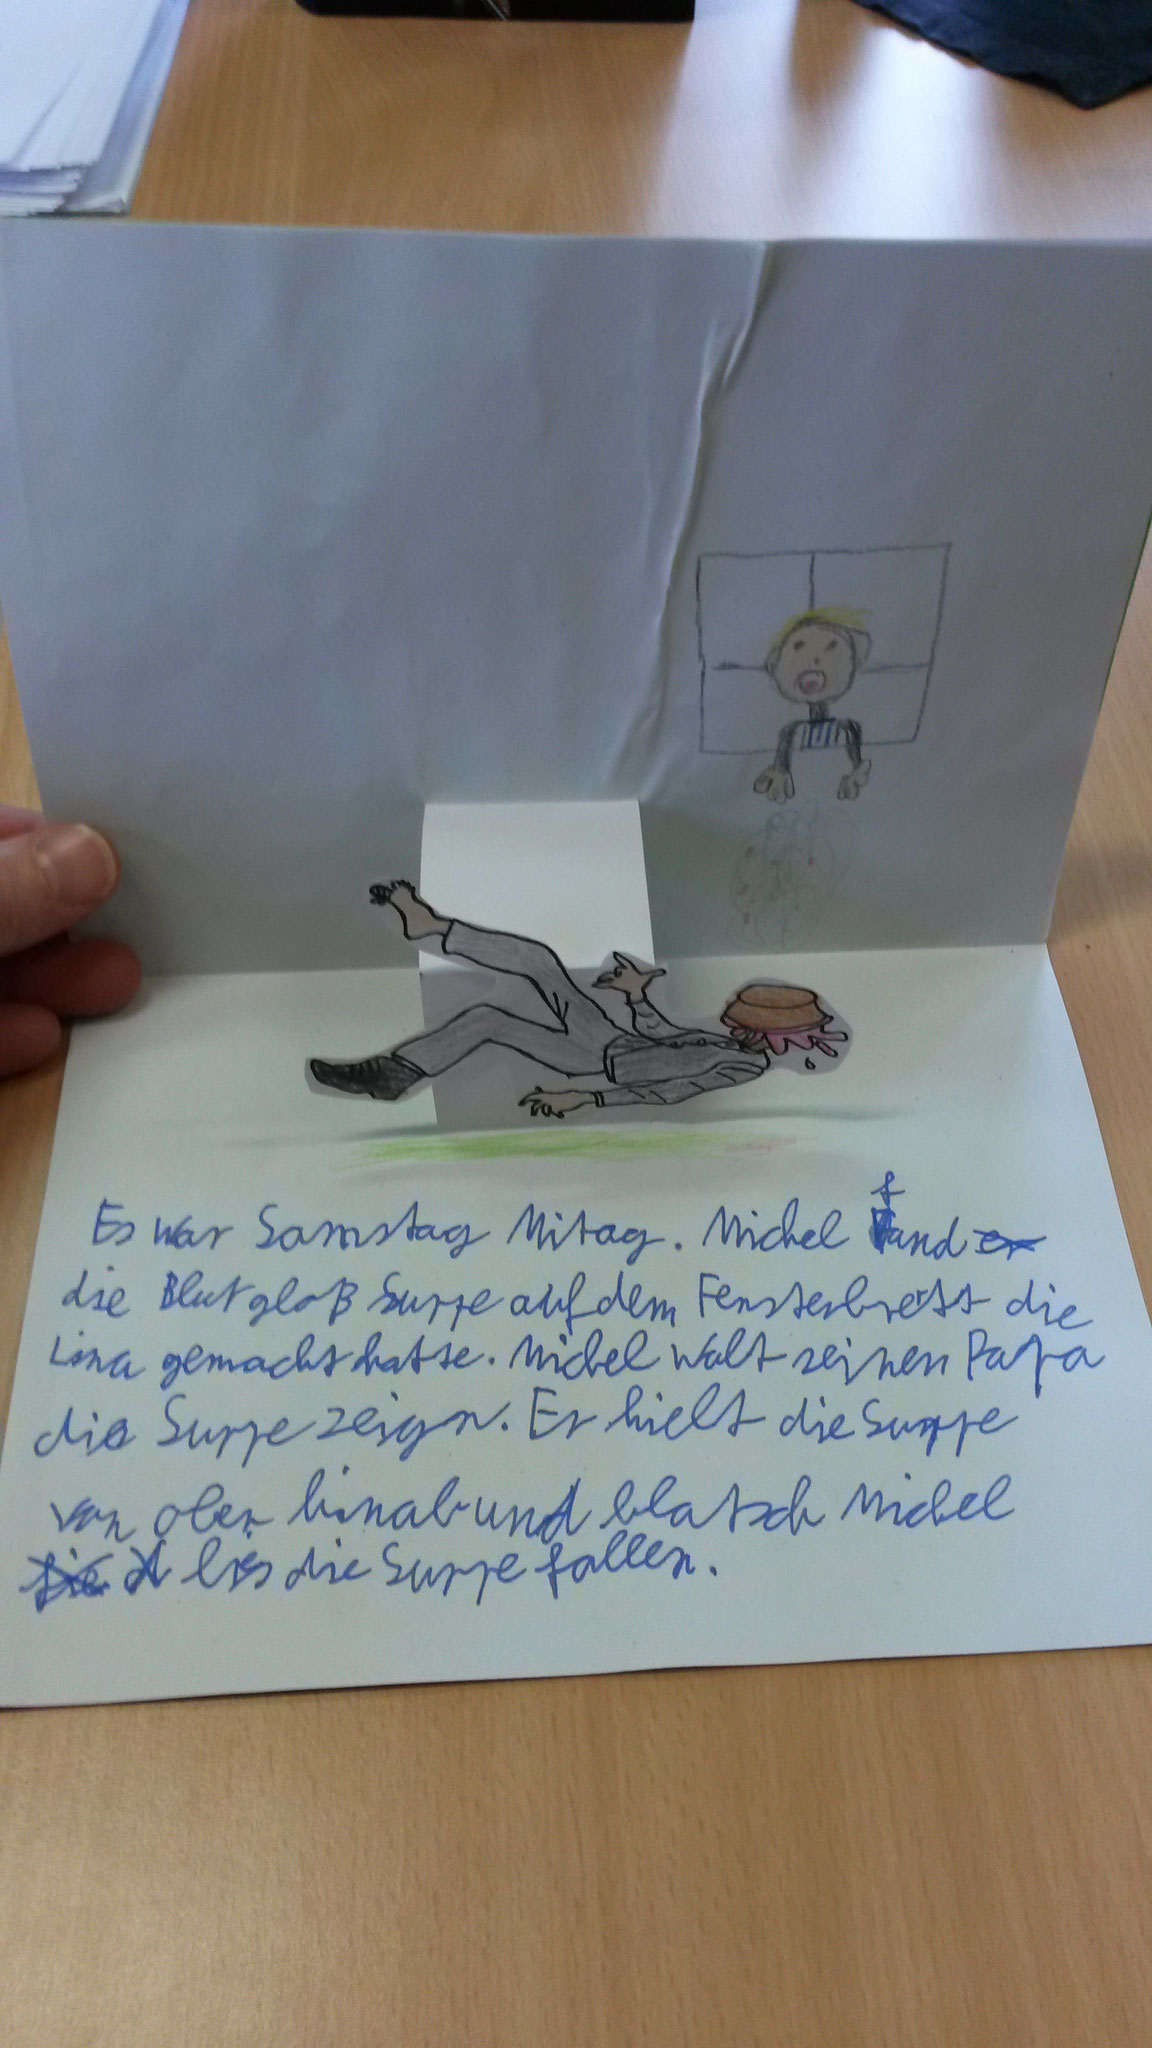 Es war Samstag Mitag. Michel fand
die Blutgloß Suppe auf dem Fensterbrett die
Lina gemacht hatte. Michel wolt seinen Papa
die Suppe zeign. Er hielt die Suppe
von oben hinab und blatsch Michel
lies die Suppe fallen.